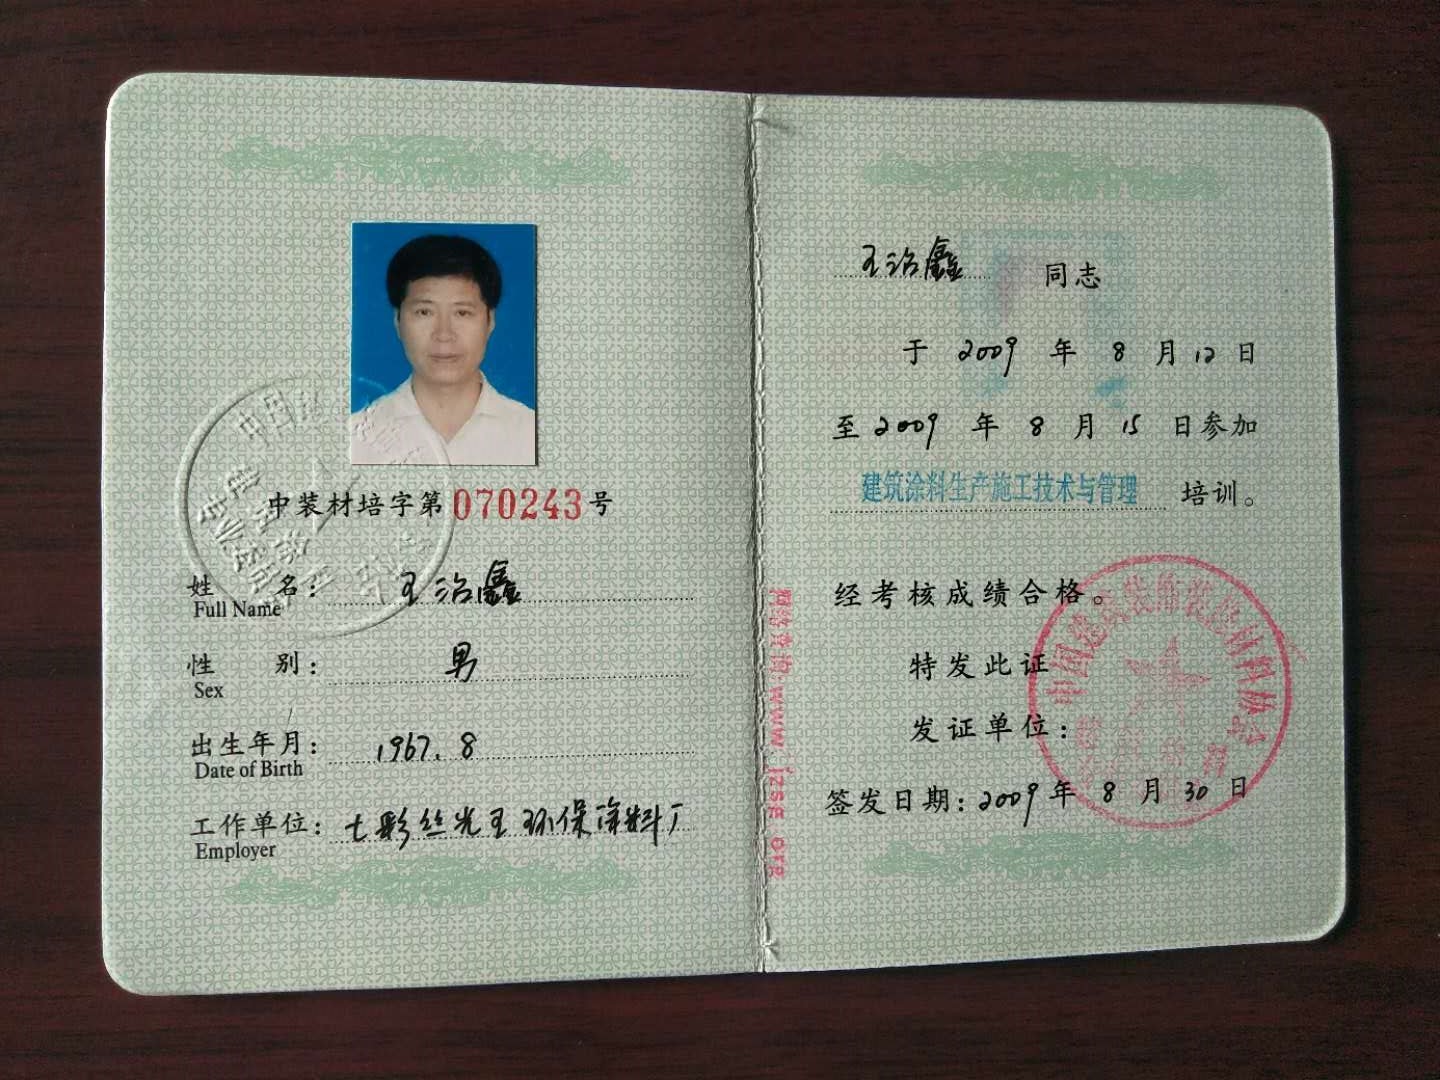 中装材培字第070243号
姓 名：王治鑫
Full Name
性 别：男
Sex
出生年月：1967.8
Date of Birth
工作单位：七彩丝光王环保涂料厂
Employer
王治鑫 同志
于 2009 年 8 月 12 日
至 2009 年 8 月 15 日参加
建筑涂料生产施工技术与管理 培训。
经考核成绩合格。
特发此证
发证单位：
签发日期：2009年 8 月 30 日
中国建筑装饰装修材料协会
网络查询:www.jzsg.org